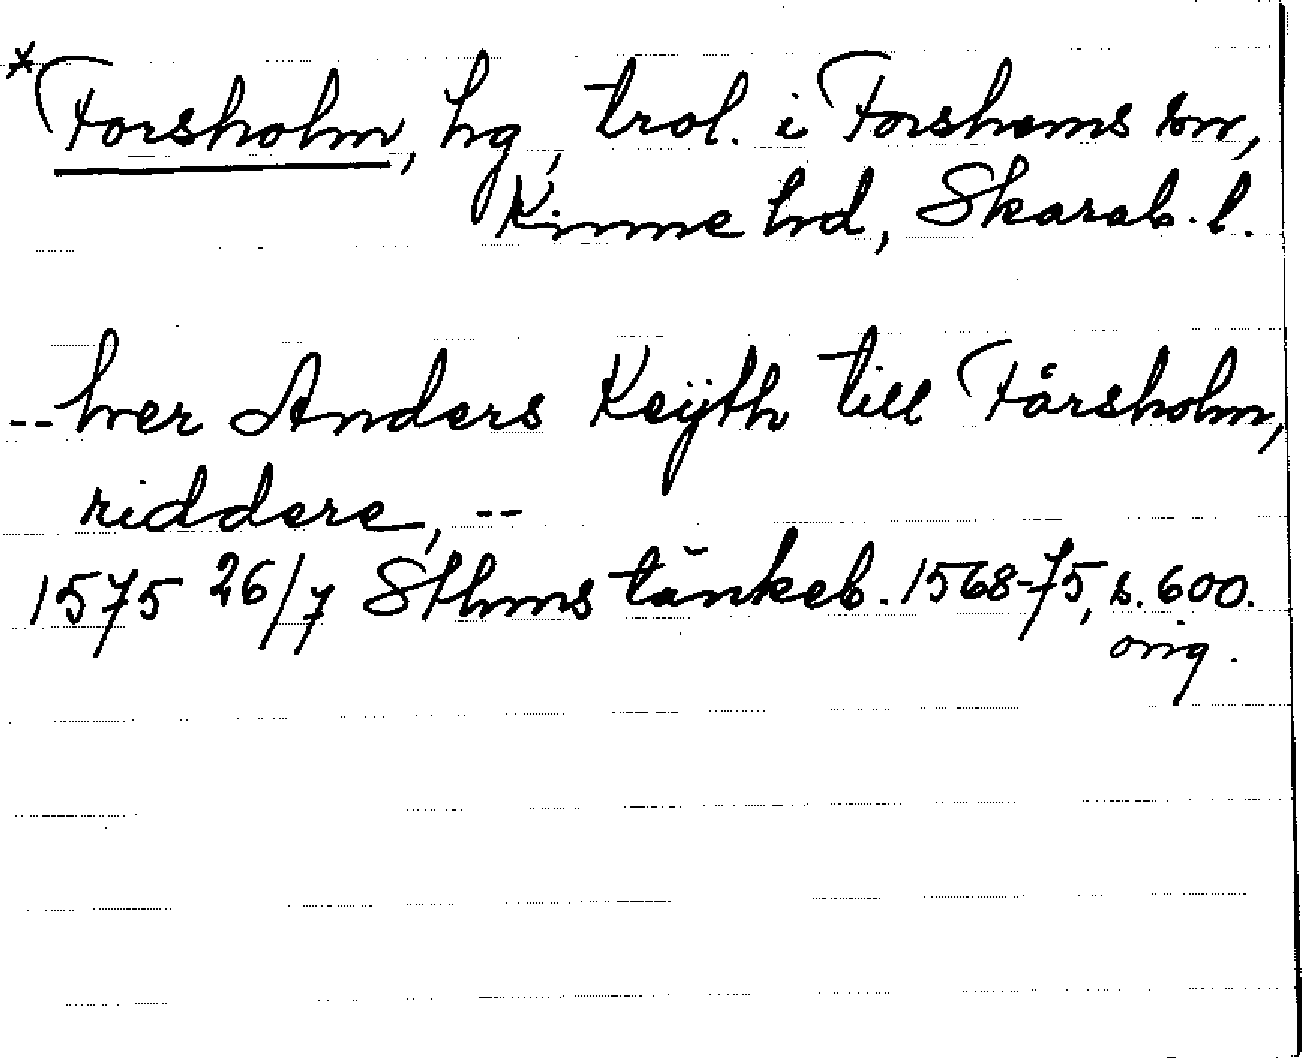 *Forsholm, hg, trol. i Forshems sn,
Kinne hd, Skarab. l.
-- her Anders Keÿth till Fårsholm,
riddere, --
1575 26/7 Sthms tänkeb. 1568-75, s. 600.
orig.